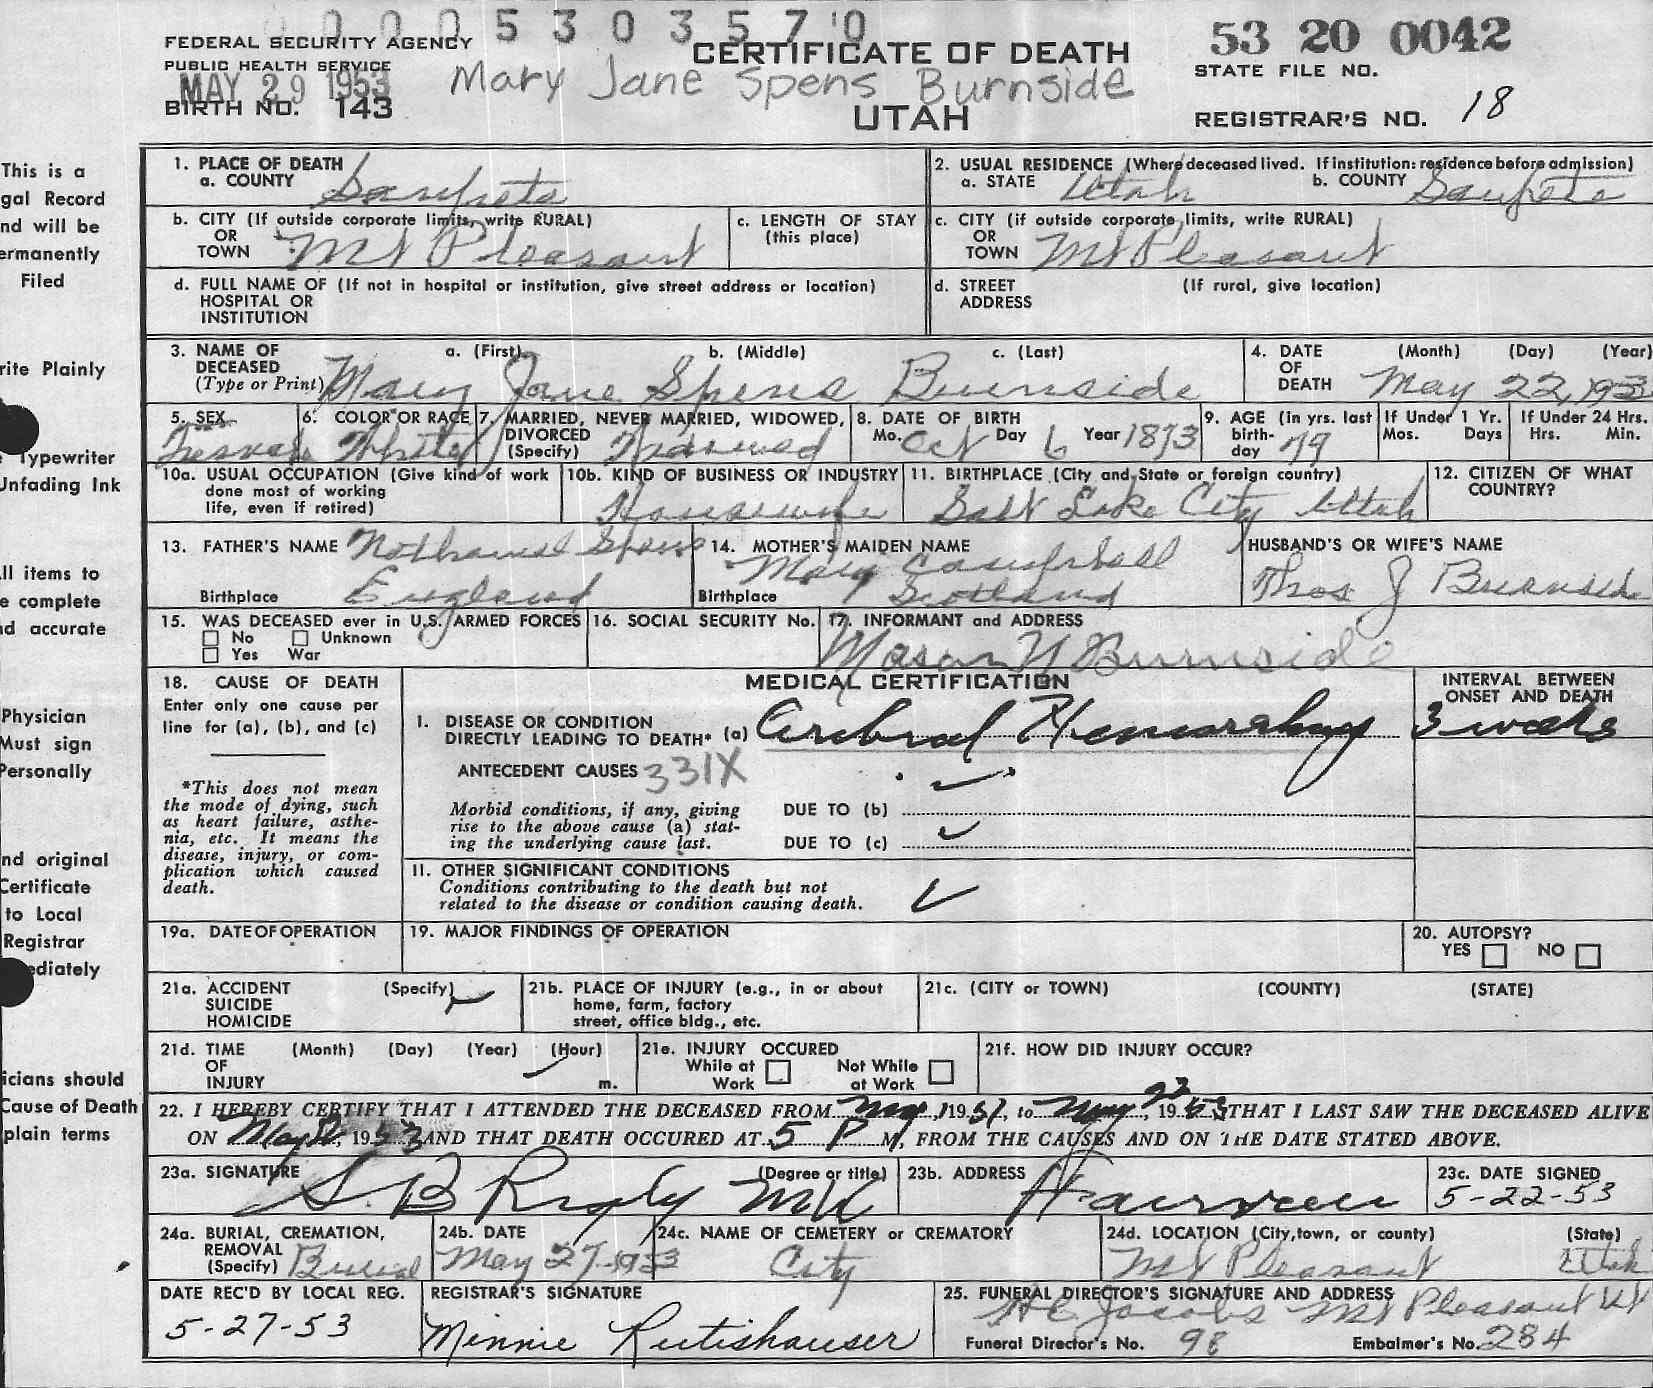 0 0 0 0 5 3 0 3 5 7 0
FEDERAL SECURITY AGENCY
PUBLIC HEALTH SERVICE
MAY 29 1953
BIRTH NO. 143
CERTIFICATE OF DEATH
Mary Jane Spens Burnside
UTAH
53 20 0042
STATE FILE NO.
REGISTRAR'S NO. 18
This is a
gal Record
nd will be
ermanently
Filed
rite Plainly
Typewriter
Unfading Ink
ll items to
e complete
nd accurate
Physician
Must sign
Personally
nd original
Certificate
to Local
Registrar
ediately
icians should
Cause of Death
plain terms
1. PLACE OF DEATH
a. COUNTY Sanpete
2. USUAL RESIDENCE (Where deceased lived. If institution: residence before admission)
a. STATE Utah b. COUNTY Sanpete
b. CITY (If outside corporate limits, write RURAL)
OR
TOWN Mt Pleasant
c. LENGTH OF STAY
(this place)
c. CITY (if outside corporate limits, write RURAL)
OR
TOWN Mt Pleasant
d. FULL NAME OF (If not in hospital or institution, give street address or location)
HOSPITAL OR
INSTITUTION
d. STREET (If rural, give location)
ADDRESS
3. NAME OF DECEASED (Type or Print) a. (First) b. (Middle) c. (Last)
Mary Jane Spens Burnside
4. DATE OF DEATH (Month) (Day) (Year)
May 22, 1953
5. SEX
Female
6. COLOR OR RACE
White
7. MARRIED, NEVER MARRIED, WIDOWED,
DIVORCED
(Specify) Widowed
8. DATE OF BIRTH
Mo. Oct Day 6 Year 1873
9. AGE (in yrs. last
birth-
day 79
If Under 1 Yr.
Mos. Days
If Under 24 Hrs.
Hrs. Min.
10a. USUAL OCCUPATION (Give kind of work
done most of working
life, even if retired)
10b. KIND OF BUSINESS OR INDUSTRY
Housewife
11. BIRTHPLACE (City and State or foreign country)
Salt Lake City Utah
12. CITIZEN OF WHAT
COUNTRY?
13. FATHER'S NAME Nathaniel Spens
Birthplace England
14. MOTHER'S MAIDEN NAME
Mary Campbell
Birthplace Scotland
HUSBAND'S OR WIFE'S NAME
Thos J Burnside
15. WAS DECEASED ever in U.S. ARMED FORCES
No Unknown
Yes War
16. SOCIAL SECURITY No.
17. INFORMANT and ADDRESS
Mason N Burnside
18. CAUSE OF DEATH
Enter only one cause per
line for (a), (b), and (c)
*This does not mean
the mode of dying, such
as heart failure, asthe-
nia, etc. It means the
disease, injury, or com-
plication which caused
death.
MEDICAL CERTIFICATION
INTERVAL BETWEEN
ONSET AND DEATH
I. DISEASE OR CONDITION
DIRECTLY LEADING TO DEATH* (a) Cerebral Hemorrhage 3 weeks
ANTECEDENT CAUSES 331X
Morbid conditions, if any, giving
rise to the above cause (a) stat-
ing the underlying cause last.
DUE TO (b)
DUE TO (c)
II. OTHER SIGNIFICANT CONDITIONS
Conditions contributing to the death but not
related to the disease or condition causing death.
19a. DATE OF OPERATION
19. MAJOR FINDINGS OF OPERATION
20. AUTOPSY?
YES NO
21a. ACCIDENT (Specify)
SUICIDE
HOMICIDE
21b. PLACE OF INJURY (e.g., in or about
home, farm, factory
street, office bldg., etc.
21c. (CITY or TOWN) (COUNTY) (STATE)
21d. TIME (Month) (Day) (Year) (Hour)
OF
INJURY m.
21e. INJURY OCCURED
While at Work Not While at Work
21f. HOW DID INJURY OCCUR?
22. I HEREBY CERTIFY THAT I ATTENDED THE DECEASED FROM May 1, 1951, to May 22, 1953 THAT I LAST SAW THE DECEASED ALIVE
ON May, 1953 AND THAT DEATH OCCURED AT 5 P M, FROM THE CAUSES AND ON THE DATE STATED ABOVE.
23a. SIGNATURE (Degree or title)
S. B Rigby MD
23b. ADDRESS
Fairview
23c. DATE SIGNED
5-22-53
24a. BURIAL, CREMATION,
REMOVAL
(Specify) Burial
24b. DATE
May 27-1953
24c. NAME OF CEMETERY OR CREMATORY
City
24d. LOCATION (City, town, or county) (State)
Mt Pleasant Utah
DATE REC'D BY LOCAL REG.
5-27-53
REGISTRAR'S SIGNATURE
Minnie Rutishauser
25. FUNERAL DIRECTOR'S SIGNATURE AND ADDRESS
H C Jacobs Mt Pleasant Ut
Funeral Director's No. 98 Embalmer's No. 284